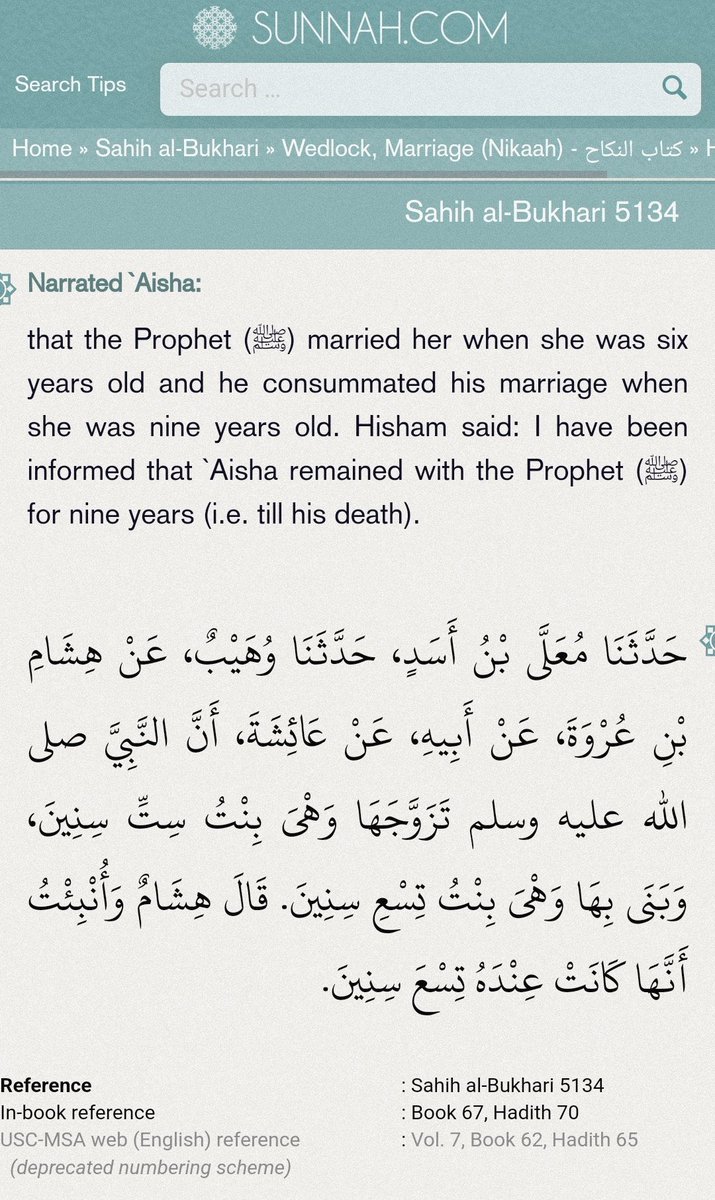 SUNNAH.COM
Search Tips
Search ...
Home » Sahih al-Bukhari » Wedlock, Marriage (Nikaah) - كتاب النكاح » H
Sahih al-Bukhari 5134
Narrated `Aisha:
that the Prophet (ﷺ) married her when she was six
years old and he consummated his marriage when
she was nine years old. Hisham said: I have been
informed that `Aisha remained with the Prophet (ﷺ)
for nine years (i.e. till his death).
حَدَّثَنَا مُعَلَّى بْنُ أَسَدٍ، حَدَّثَنَا وُهَيْبٌ، عَنْ هِشَامِ
بْنِ عُرْوَةَ، عَنْ أَبِيهِ، عَنْ عَائِشَةَ، أَنَّ النَّبِيَّ صلى
الله عليه وسلم تَزَوَّجَهَا وَهْىَ بِنْتُ سِتِّ سِنِينَ،
وَبَنَى بِهَا وَهْىَ بِنْتُ تِسْعِ سِنِينَ. قَالَ هِشَامٌ وَأُنْبِئْتُ
أَنَّهَا كَانَتْ عِنْدَهُ تِسْعَ سِنِينَ.
Reference : Sahih al-Bukhari 5134
In-book reference : Book 67, Hadith 70
USC-MSA web (English) reference : Vol. 7, Book 62, Hadith 65
(deprecated numbering scheme)